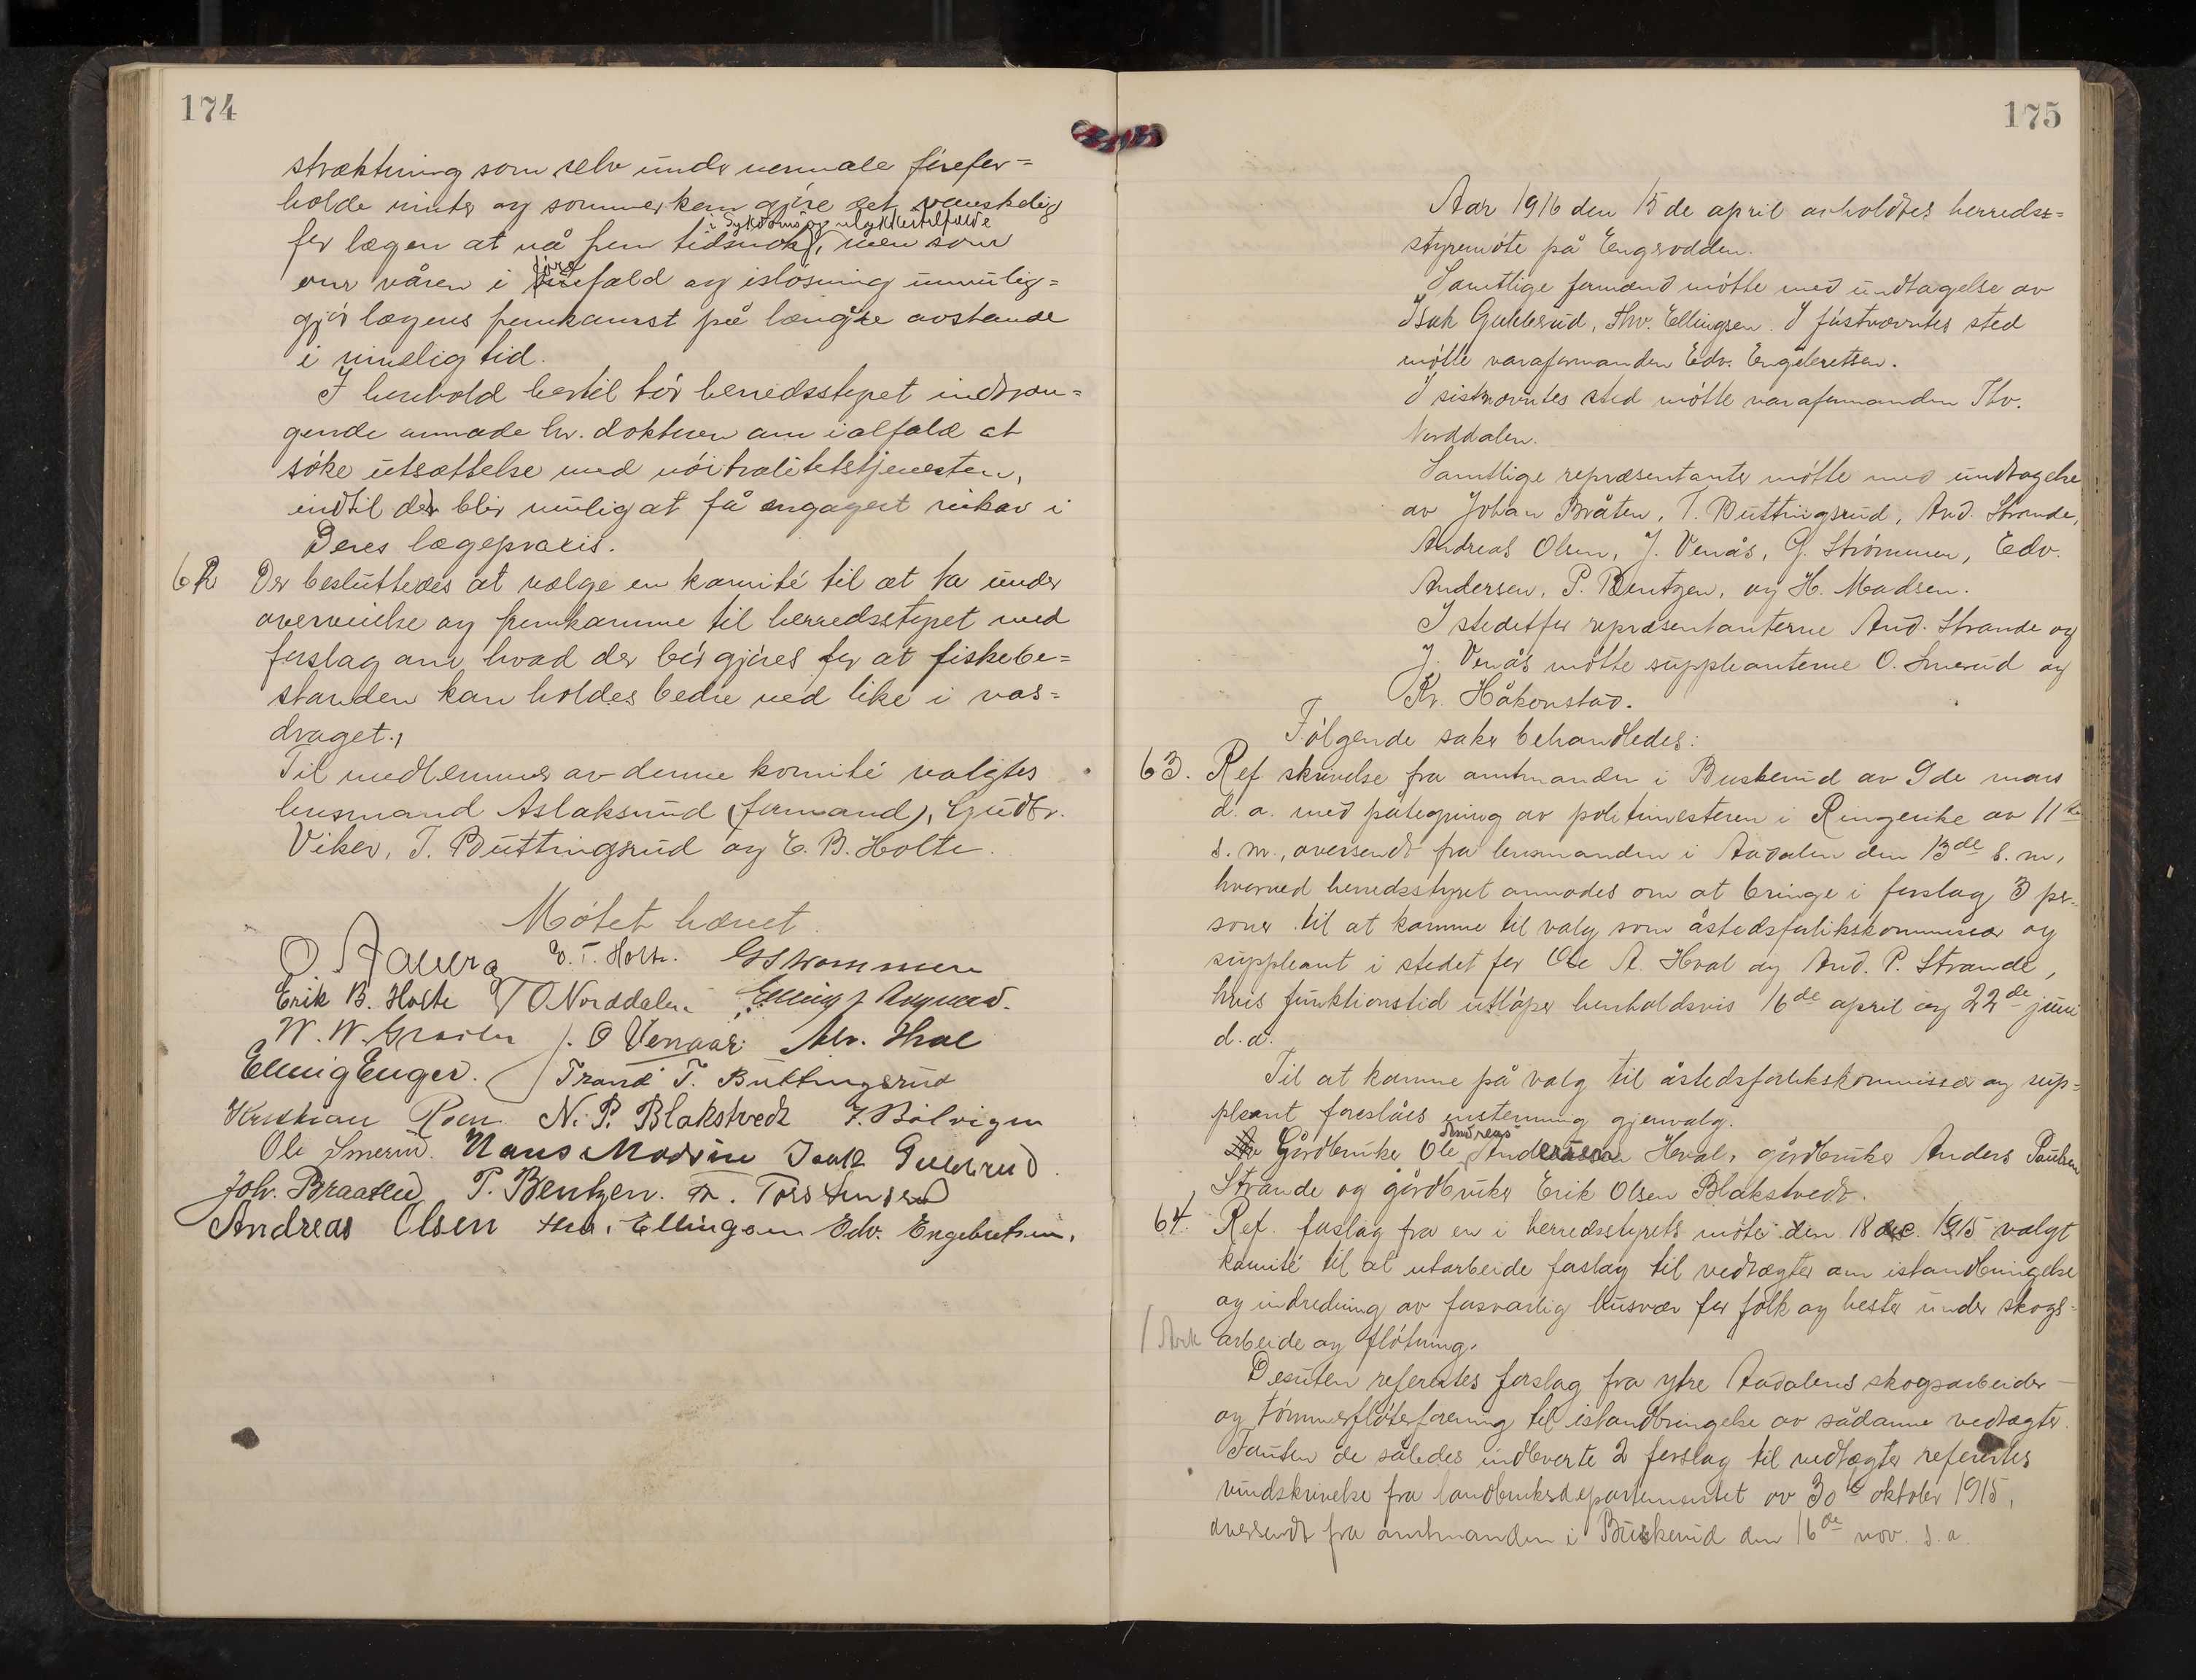 174
strækning som selv under normale førefor=
holde vinter og sommer kan gjøre det vanskelig
i sykdoms og ulykkestilfælde
for lægen at nå frem tidsnok, men som
om våren i føre fald og isløsning umulig=
gjør lægens fremkomst på længre avstande
i rimelig tid.
I henhold hertil tør herredsstyret indtræn=
gende anmode hr. doktoren om ialfald at
søke utsættelse med nøitralitetstjenesten,
indtil det blir mulig at få engagert vikar i
Deres lægepraxis.
62 Der besluttedes at vælge en komité til at ta under
overveielse og fremkomme til herredsstyret med
forslag om hvad der bør gjøres for at fiskebe=
standen kan holdes bedre ved like i vas=
draget.
Til medlemmer av denne komité valgtes
lensmand Aslaksrud (formand), Gudbr.
Viker, T. Buttingsrud og E. B. Holte.
Møtet hævet.
O. Aaberg E. T. Holte. G Strømmen
Erik B. Holte T O Norddalen Elling
W. W. J. O Venaas. Alv. Hval
Elling Enger. Trand T. Buttingsrud
Kristian Roen N. P. Blakstvedt J. Bølvigen
Ole Smerud. Hans Madsen Isak Gulbrud.
Joh. Braaten P. Bentzen.
Andreas Olsen Thv. Ellingsen Edv. Engebretsen.
175
Aar 1916 den 15de april avholdtes herreds=
styremøte på Engerodden.
Samtlige formænd møtte med undtagelse av
Isak Gulbrud, Thv. Ellingsen. I førstnævntes sted
møtte varaformanden Edv. Engebretsen.
I sistnævntes sted møtte varaformanden Thv.
Norddalen.
Samtlige repræsentanter møtte med undtagelse
av Johan Bråten, T. Buttingsrud, And. Strande,
Andreas Olsen, J. Venås, G. Strømmen, Edv.
Andersen, P. Bentzen, og H. Madsen.
I stedet for repræsentanterne And. Strande og
J. Venås møtte suppleanterne O. Smerud og
Kr. Håkonstad.
Følgende saker behandledes:
63. Ref. skrivelse fra amtmanden i Buskerud av 9de mars
d. a. med påtegning av politimesteren i Ringerike av 11te
s. m., oversendt fra lensmanden i Aadalen den 13de s. m,
hvorved herredsstyret anmodes om at bringe i forslag 3 per-
soner til at komme til valg som åstedsforlikskommissær og
suppleant i stedet for Ole A. Hval og And. P. Strande,
hvis funktionstid utløper henholdsvis 16de april og 22de juni
d. a.
Til at komme på valg til åstedsforlikskommissær og sup=
pleant foreslåes enstemmig gjenvalg.
Andreas
Gårdbruker Ole Hval, gårdbruker Anders Paulsen
Strande og gårdbruker Erik Olsen Blakstvedt.
64. Ref. forslag fra en i herredsstyrets møte den 18 dec. 1915 valgt
komité til at utarbeide forslag til vedtægter om istandbringelse
og indredning av forsvarlig husvær for folk og hester under skogs=
arbeide og fløtning.
Desuten refertes forslag fra ytre Aadalens skogsarbeider-
og tømmerfløterforening til istandbringelse av sådanne vedtægter.
Foruten de således indleverte 2 forslag til vedtægter refertes
rundskrivelse fra landbruksdepartementet av 30te oktober 1915,
oversendt fra amtmanden i Buskerud den 16de nov. s. a.